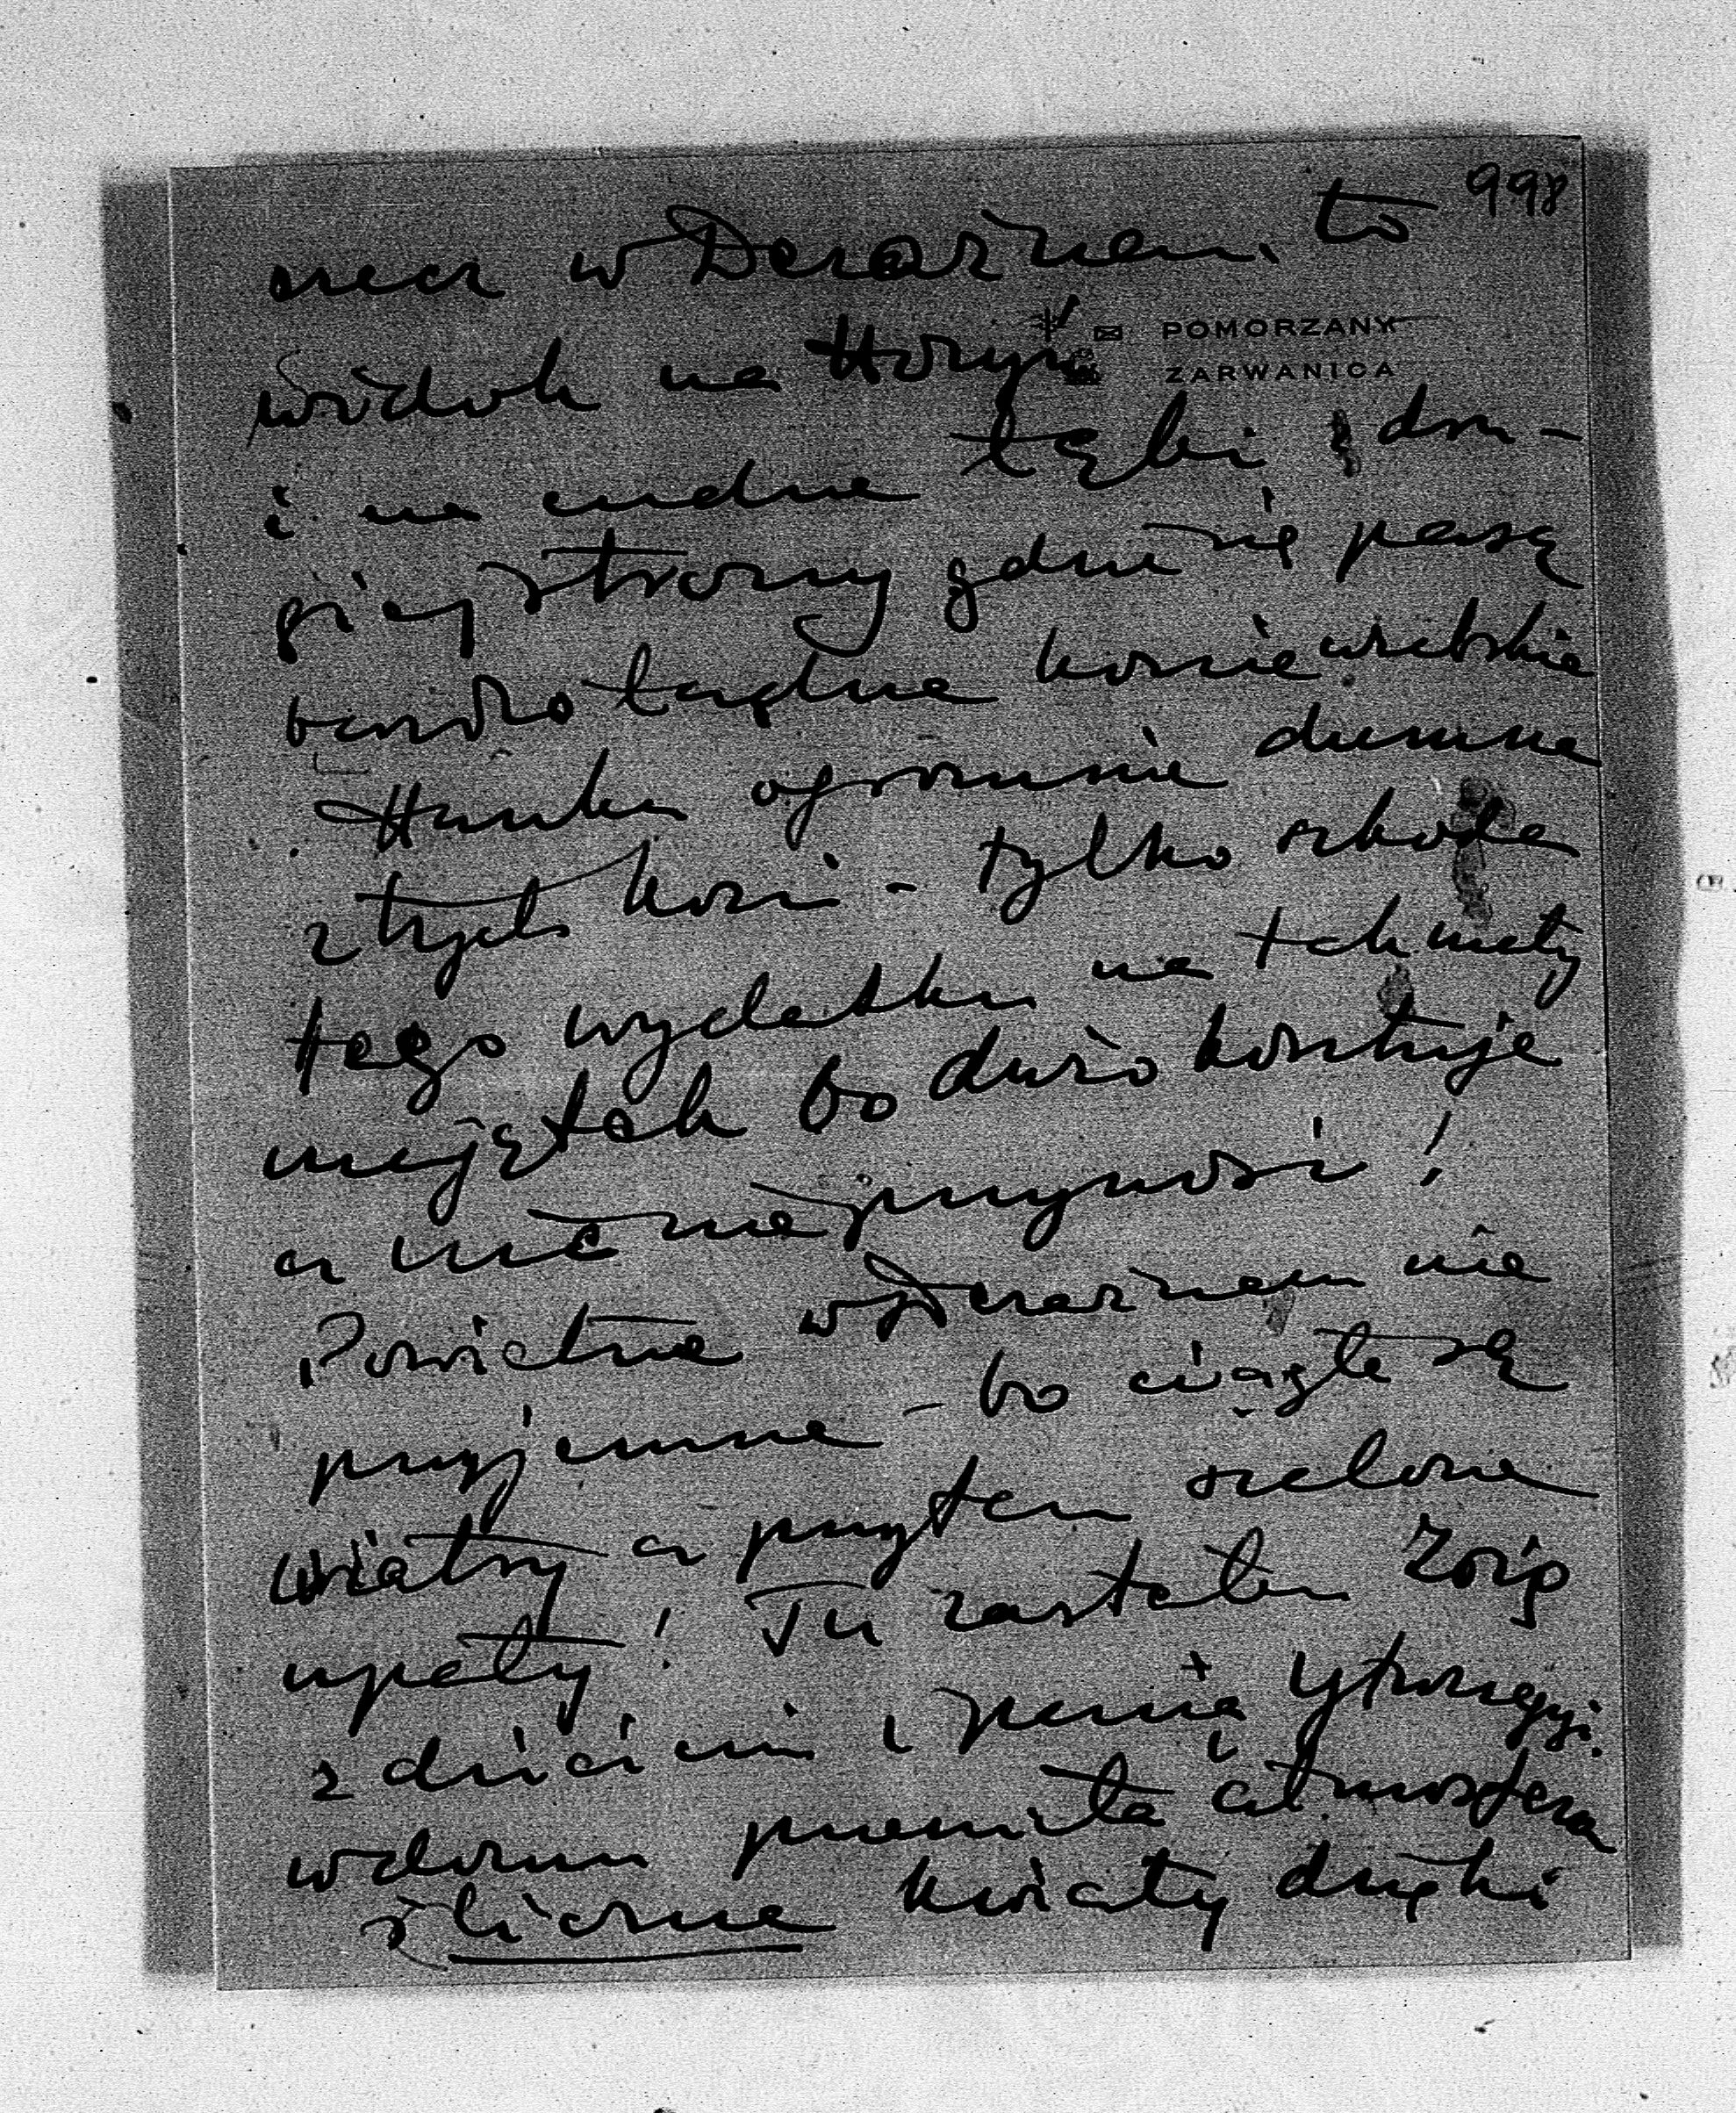 998
rzecz w Derażnem. to
POMORZANY
widok na Horyń
ZARWANICA
i na cudne łąki z dru-
giej strony gdzie się pasą
bardzo ładne konie arabskie
Hanka ogromnie dumna
z tych koni - tylko szkoda
tego wydatku na tak mały
majątek bo dużo kosztuje
a nic nie przynosi!
Powietrze w Derażnem nie
przyjemne - bo ciągłe są
wiatry a przytem szalone
upały! Tu zastałam Zosię
z dziećmi i panią
w domu przemiła atmosfera
śliczne kwiaty dzięki